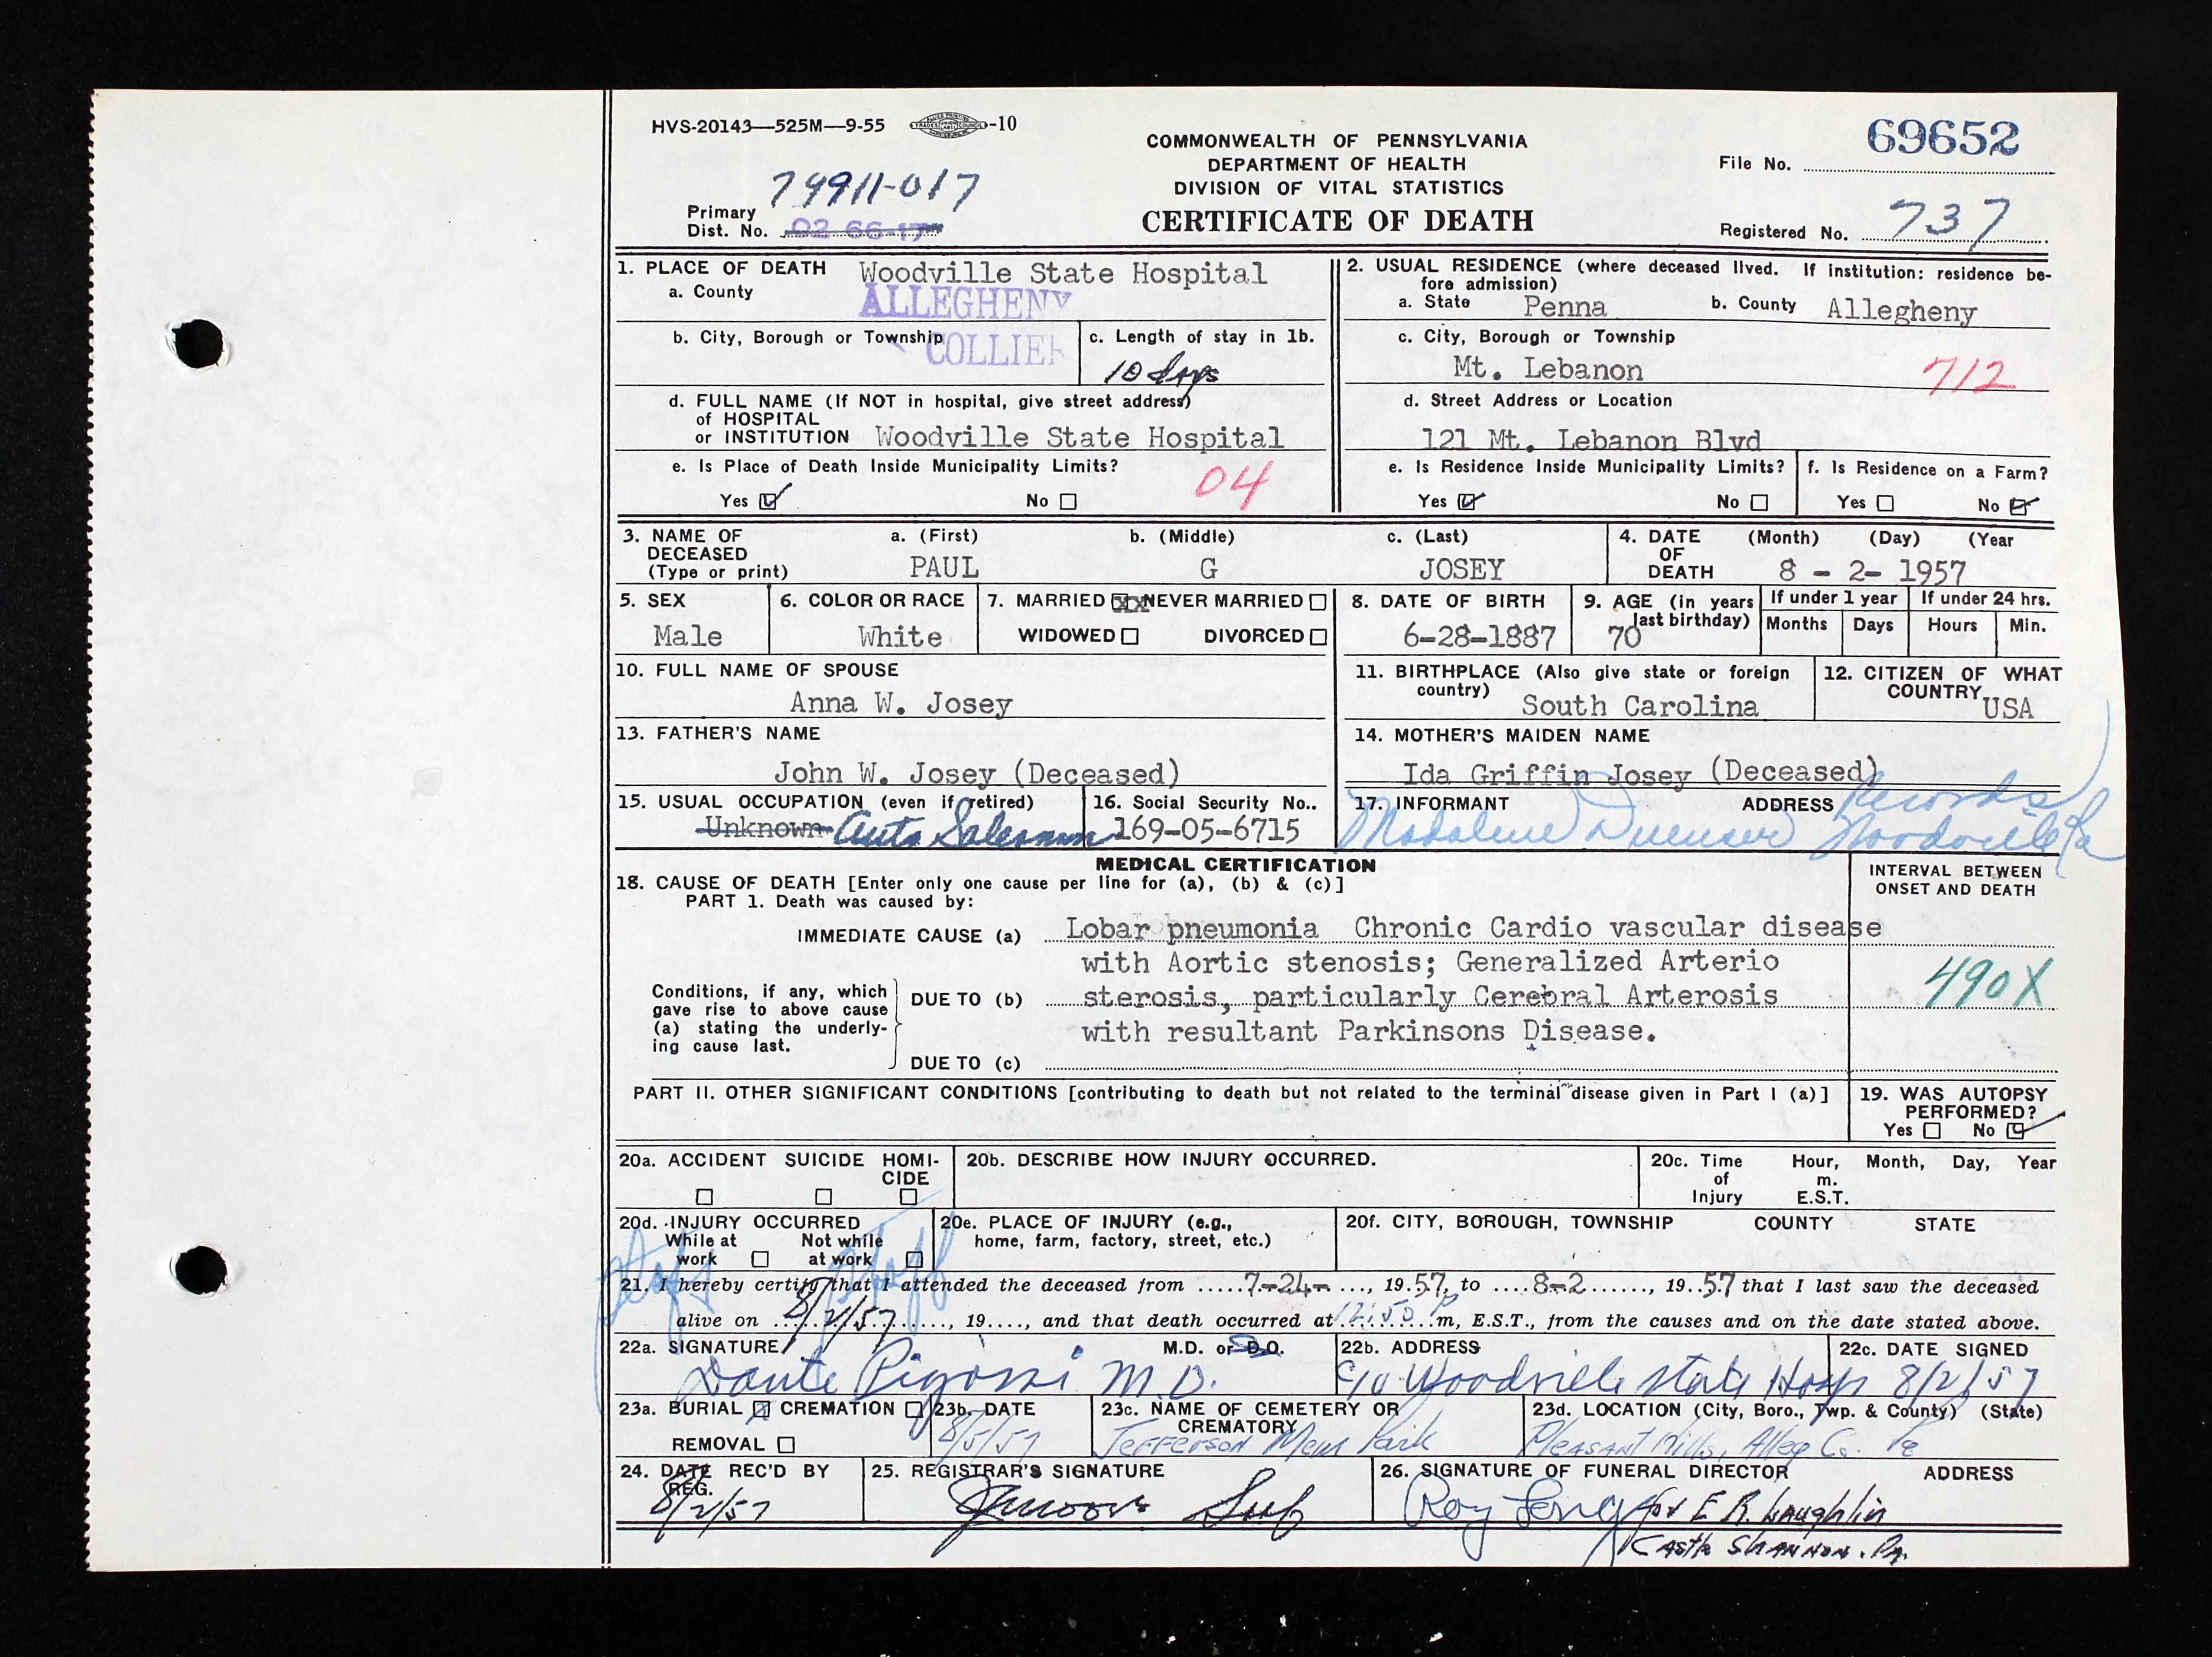 HVS-20143—525M—9-55 -10
COMMONWEALTH OF PENNSYLVANIA
DEPARTMENT OF HEALTH
DIVISION OF VITAL STATISTICS
CERTIFICATE OF DEATH
69652
File No.
74911-017
Primary
Dist. No. 02-66-17
Registered No. 737
1. PLACE OF DEATH Woodville State Hospital
a. County ALLEGHENY
b. City, Borough or Township COLLIER
c. Length of stay in 1b.
10 days
d. FULL NAME (If NOT in hospital, give street address)
of HOSPITAL
or INSTITUTION Woodville State Hospital
e. Is Place of Death Inside Municipality Limits? 04
Yes No
2. USUAL RESIDENCE (where deceased lived. If institution: residence be-
fore admission)
a. State Penna b. County Allegheny
c. City, Borough or Township
Mt. Lebanon 712
d. Street Address or Location
121 Mt. Lebanon Blvd
e. Is Residence Inside Municipality Limits? f. Is Residence on a Farm?
Yes No Yes No
3. NAME OF a. (First) b. (Middle) c. (Last)
DECEASED
(Type or print) PAUL G JOSEY
4. DATE (Month) (Day) (Year
OF
DEATH 8 - 2- 1957
5. SEX
Male
6. COLOR OR RACE
White
7. MARRIED XX NEVER MARRIED
WIDOWED DIVORCED
8. DATE OF BIRTH
6-28-1887
9. AGE (in years
last birthday)
70
If under 1 year If under 24 hrs.
Months Days Hours Min.
10. FULL NAME OF SPOUSE
Anna W. Josey
11. BIRTHPLACE (Also give state or foreign
country) South Carolina
12. CITIZEN OF WHAT
COUNTRY USA
13. FATHER'S NAME
John W. Josey (Deceased)
14. MOTHER'S MAIDEN NAME
Ida Griffin Josey (Deceased)
15. USUAL OCCUPATION (even if retired)
Unknown Auto Salesman
16. Social Security No..
169-05-6715
17. INFORMANT ADDRESS Records
Madaline Woodville Pa
MEDICAL CERTIFICATION
18. CAUSE OF DEATH [Enter only one cause per line for (a), (b) & (c)]
PART 1. Death was caused by:
INTERVAL BETWEEN
ONSET AND DEATH
IMMEDIATE CAUSE (a) Lobar pneumonia Chronic Cardio vascular disease
with Aortic stenosis; Generalized Arterio
Conditions, if any, which
gave rise to above cause
(a) stating the underly-
ing cause last.
DUE TO (b) sterosis, particularly Cerebral Arterosis
with resultant Parkinsons Disease.
DUE TO (c)
490X
PART II. OTHER SIGNIFICANT CONDITIONS [contributing to death but not related to the terminal disease given in Part I (a)]
19. WAS AUTOPSY
PERFORMED?
Yes No
20a. ACCIDENT SUICIDE HOMI-
CIDE
20b. DESCRIBE HOW INJURY OCCURRED.
20c. Time Hour, Month, Day, Year
of m.
Injury E.S.T.
20d. INJURY OCCURRED
While at Not while
work at work
20e. PLACE OF INJURY (e.g.,
home, farm, factory, street, etc.)
20f. CITY, BOROUGH, TOWNSHIP COUNTY STATE
21. I hereby certify that I attended the deceased from 7-24-, 1957, to 8-2, 1957 that I last saw the deceased
alive on 8/2/57, 19...., and that death occurred at 12:50 P m, E.S.T., from the causes and on the date stated above.
22a. SIGNATURE M.D. or D.O.
Dante M.D.
22b. ADDRESS
c/o Woodville State Hosp
22c. DATE SIGNED
8/2/57
23a. BURIAL CREMATION
REMOVAL
23b. DATE
8/5/57
23c. NAME OF CEMETERY OR
CREMATORY
Jefferson Mem Park
23d. LOCATION (City, Boro., Twp. & County) (State)
Pleasant Hills, Alleg Co. Pa
24. DATE REC'D BY
REG.
8/2/57
25. REGISTRAR'S SIGNATURE
Sub
26. SIGNATURE OF FUNERAL DIRECTOR ADDRESS
Roy for E R. Laughlin
Castle Shannon. Pa.